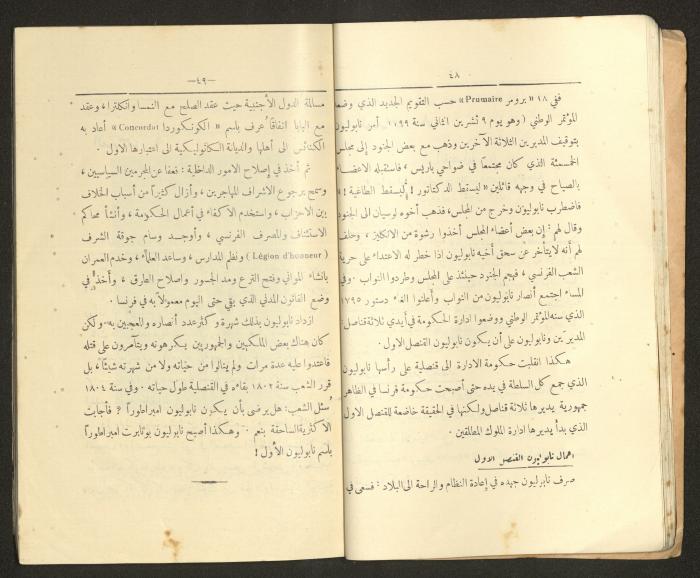 ٤٨
ففي ١٨ « برومر Prumaire» حسب التقويم الجديد الذي وضعه
المؤتمر الوطني ( وهو يوم ٩ تشرين الثاني سنة ١٧٩٩ أمر نابوليون
بتوقيف المديرين الثلاثة الآخرين وذهب مع بعض الجنود إلى مجلس
الخمسمئة الذي كان مجتمعاً في ضواحي باريس ، فاستقبله الاعضاء
بالصياح في وجهه قائلين « ليسقط الدكتاتور ! ليسقط الطاغية ! »
فاضطرب نابوليون وخرج من المجلس، فذهب أخوه لوسيان الى الجنود
وقال لهم : إن بعض أعضاء المجلس أخذوا رشوة من الانكليز ، وحلف
لهم أنه لا يتأخر عن سحق أخيه نابوليون اذا خطر له الاعتداء على حرية
الشعب الفرنسي ، فهجم الجنود حينئذ على المجلس وطردوا النواب . وفي
المساء اجتمع أنصار نابوليون من النواب وأعلنوا الغاء دستور ١٧٩٥
الذي سنه المؤتمر الوطني ووضعوا ادارة الحكومة في أيدي ثلاثة قناصل :
المديرين ونابوليون على أن يكون نابوليون القنصل الاول .
هكذا انقلبت حكومة الادارة الى قنصلية على رأسها نابوليون
الذي جمع كل السلطة في يده حتى أصبحت حكومة فرنسا في الظاهر
جمهورية يديرها ثلاثة قناصل ولكنها في الحقيقة خاضعة للقنصل الاول
الذي بدأ يديرها ادارة الملوك المطلقين .
اعمال نابوليون القنصل الاول
صرف نابوليون جهده في إعادة النظام والراحة الى البلاد : فسعى في
—٤٩—
مسالمة الدول الأجنبية حيث عقد الصلح مع النمسا وانكلترا ، وعقد
مع البابا اتفاقاً عرف باسم « الكونكوردا Concordat » أعاد به
الكنائس الى أهلها والديانة الكاثوليكية الى اعتبارها الاول .
ثم أخذ في إصلاح الامور الداخلية : فعفا عن المجرمين السياسيين ،
وسمح برجوع الاشراف المهاجرين ، وأزال كثيراً من أسباب الخلاف
بين الاحزاب ، واستخدم الأكفاء في أعمال الحكومة ، وأنشأ محاكم
الاستئناف والمصرف الفرنسي ، وأوجد وسام جوقة الشرف
( Légion d'honneur ) ونظم المدارس ، وساعد العلماء ، وخدم العمران
بانشاء المواني وفتح الترع ومد الجسور واصلاح الطرق ، وأخذ في
وضع القانون المدني الذي بقي حتى اليوم معمولاً به في فرنسا .
ازداد نابوليون بذلك شهرة وكثر عدد أنصاره والمعجبين به . ولكن
كان هناك بعض الملكيين والجمهوريين يكرهونه ويتآمرون على قتله
فاعتدوا عليه عدة مرات ولم ينالوا من حياته ولا من شهرته شيئاً ، بل
قرر الشعب سنة ١٨٠٢ بقاءه في القنصلية طول حياته . وفي سنة ١٨٠٤
سُئل الشعب : هل يرضى بأن يكون نابوليون امبراطوراً ؟ فأجابت
الأكثرية الساحقة بنعم . وهكذا أصبح نابوليون بونابرت امبراطوراً
باسم نابوليون الأول !